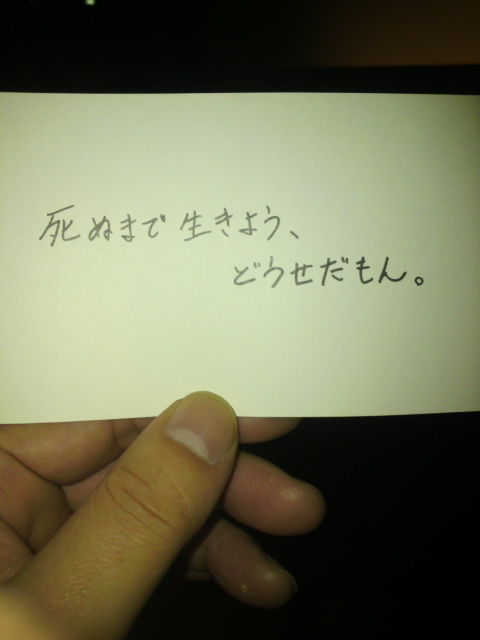 死ぬまで生きよう、
どうせだもん。